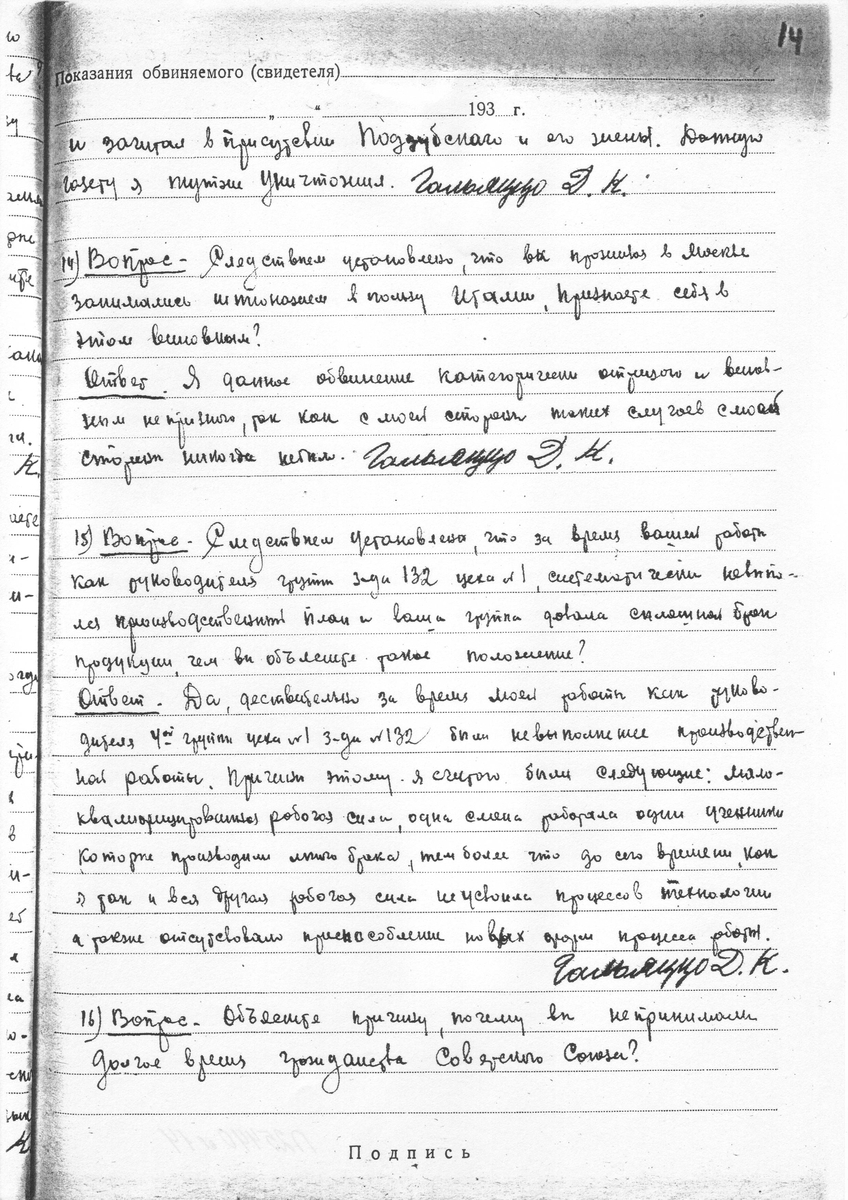 14
Показания обвиняемого (свидетеля)
„ “ 193 г.
и зачитал в присутсвии Подзубскаго и его жены. Данную
газету я тутже уничтожил. Гальяццо Д. К.
14) Вопрос - Следствием установлено, что вы проживая в Москве
занимались шпионажем в пользу Италии, признаете себя в
этом виновным?
Ответ. Я данное обвинение категорически отрицаю и винов-
ным непризнаю, так как с моей стороны таких случаев смоей
стороны никогда небыло. Гальяццо Д. К.
15) Вопрос - Следствием установлено, что за время вашей работы
как руководителя группы з-да 132 цеха №1, систематически невыпо-
лся производственный план и ваша группа давала сплошной брак
продукции, чем вы объясните такое положение?
Ответ. Да, дествительно за время моей работы как руково-
дителя 4ой группы цеха №1 з-да №132 были невыполнение производствен-
ной работы. Причины этому я считаю были следующие: мало-
квалифицированная рабочая сила, одна смена работала одни ученики
которые производили много брака, тем более что до сего времени, как
я так и вся другая рабочая сила неусвоила процессов технологии
а также отсутсвовало приспособление новых форм процесса работы.
Гальяццо Д. К.
16) Вопрос - Объясните причину, почему вы непринимали
долгое время гражданства Советского Союза?
Подпись